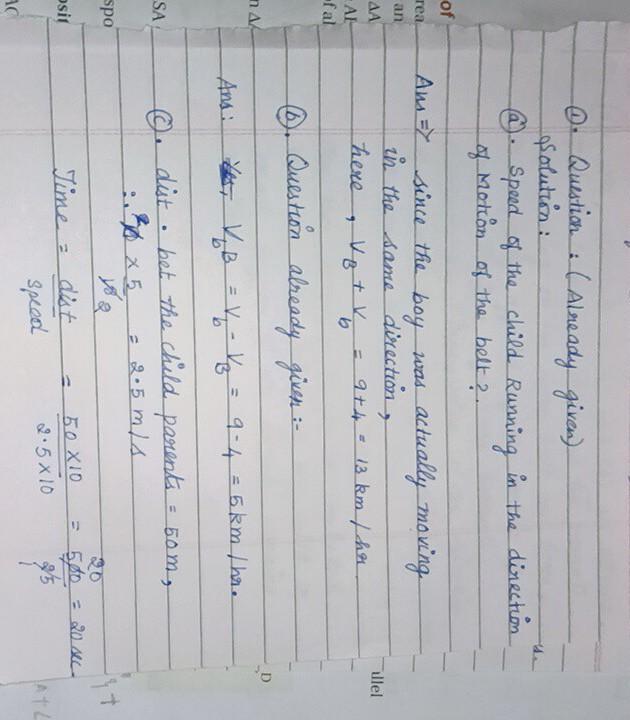 ①. Question : (Already given)
Solution :
ⓐ. Speed of the child Running in the direction
of Motion of the belt ?
Ans => since the boy was actually moving
in the same direction,
here, V_B + V_b = 9+4 = 13 km/hr
ⓑ. Question already given :-
Ans : V_bB = V_b - V_B = 9-4 = 5 km/hr.
ⓒ. dist. bet the child parents = 50m,
∴ 9 × 5 = 2.5 m/s
18 2
Time = dist / Speed = 50 × 10 / 2.5 × 10 = 500 / 25 = 20 sec
20
1
of
rea
an
ΔA
AI
f al
n Δ
SA
spo
osit
AC
llel
D